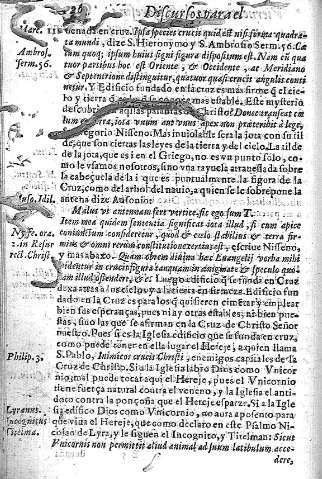 Discursos para el
Marc. 11
denada en cruz. Ipsa species crucis quid est nisi forma quadra-
ta mundi, dize S. Hieronymo y S. Ambrosio Serm. 56. Cæ
Ambros.
lum quoq; ipsum huius signi figura dispositum est. Nam cū qua
serm. 56.
tuor partibus hoc est Oriente & Occidente, ac Meridiano
& Septentrione distinguitur, quatuor quasi crucis angulis conti
netur. Y Edificio fundado en la cruz es mas firme q el cie-
lo y tierra
estable. Este mysterio
aquellas palabras Christo? Donec transeat cæ
lum & terra, iota vnum aut vnus apex non præteribit à lege,
Gregorio Nisseno. Mas inuiolable sera la jota con su til
de, que son ciertas las leyes de la tierra y del cielo. La tilde
de la jota, que es i en el Griego, no es vn punto solo, co-
mo le vsamos nosotros, sino vna rayuela atrauessada sobre
la cabeçuela de la i que es puntualmente la figura de la
Cruz, como del arbol del nauio, a quien se le sobrepone la
antena dize Ausonio
Malus vt antennam fert vertice, sic ego sum T.
Item mea quidem sententia significat iota illud, si cum apice
Nysse. ora.
coniunctum consideretur, quod & cœlo stabilius & terra firm
in Resur
mius & omni rerum constitutione certius est, escriue Nisseno,
rect. Christ.
y mas abaxo. Quam obrem diuina hæc Euangelij verba mihi
videntur in crucis figura tanquam in ænigmate & speculo quo-
dam illud ostendere, &c. Luego edificio que se funda en Cruz
dexa atras a los cielos y a la tierra en firmeza. Edificio fun
dado en la Cruz es para los q quisieren cimetar y emplear
bien sus esperanças, pues ni ay otras estables, ni bien pue-
stas, sino las que se afirman en la Cruz de Christo Señor
nuestro. Pues si es la Iglesia edificio que se funda en cruz,
como puede poner en ella lugar el Hereje, a quien llama
Philip. 3,
S. Pablo, Inimicos crucis Christi, enemigos capitales de la
Cruz de Christo. Si a la Iglesia labiò Dios como Vnicor
nio, mal puede tocar aqui el Hereje, pues el Vnicornio
tiene fuerça natural contra el veneno, y la Iglesia el anti-
doto contra la ponçoña que el Hereje esparze. Si a la Igle
Lyranus.
sia edifico Dios como Vnicornio, no aura aposento para
Incognitus
que viua el Hereje, que como declarò en este Psalmo Ni
Titelma.
colao de Lyra, y le siguen el Incognito, y Titelman: Sicut
Vnicornis non permittit aliud animal ad suum latibulum acce-
dere,